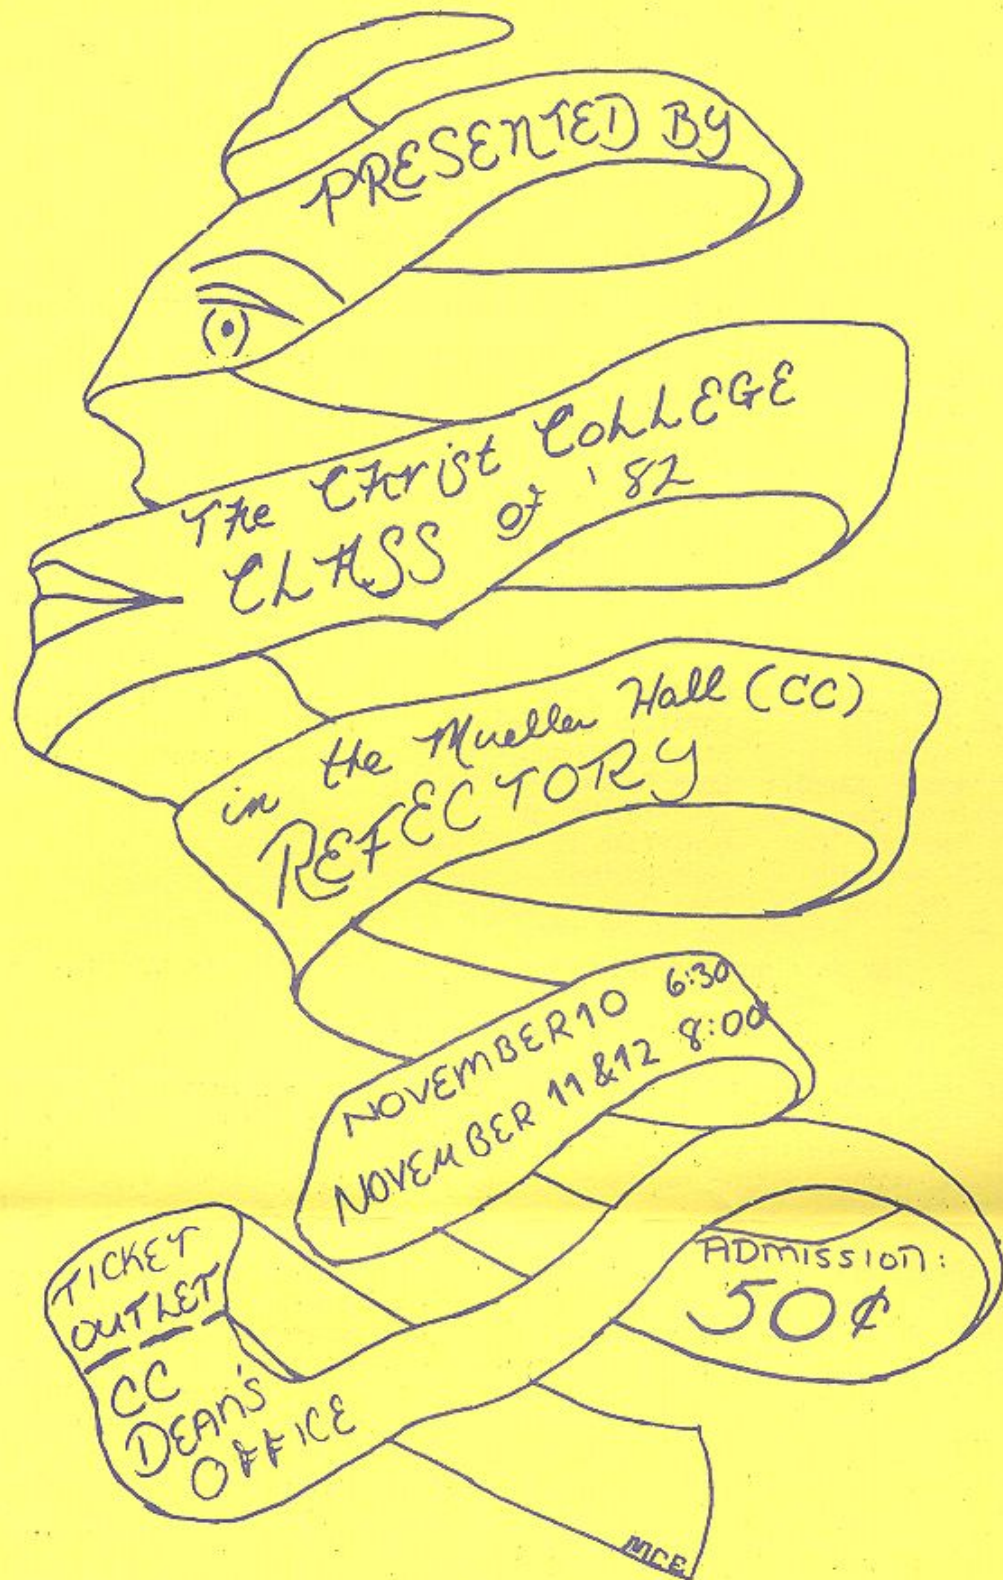 PRESENTED BY
The Christ College
CLASS of '82
in the Mueller Hall (CC)
REFECTORY
NOVEMBER 10 6:30
NOVEMBER 11 & 12 8:00
TICKET
OUTLET
CC
DEAN'S
OFFICE
ADMISSION:
50¢
MCE